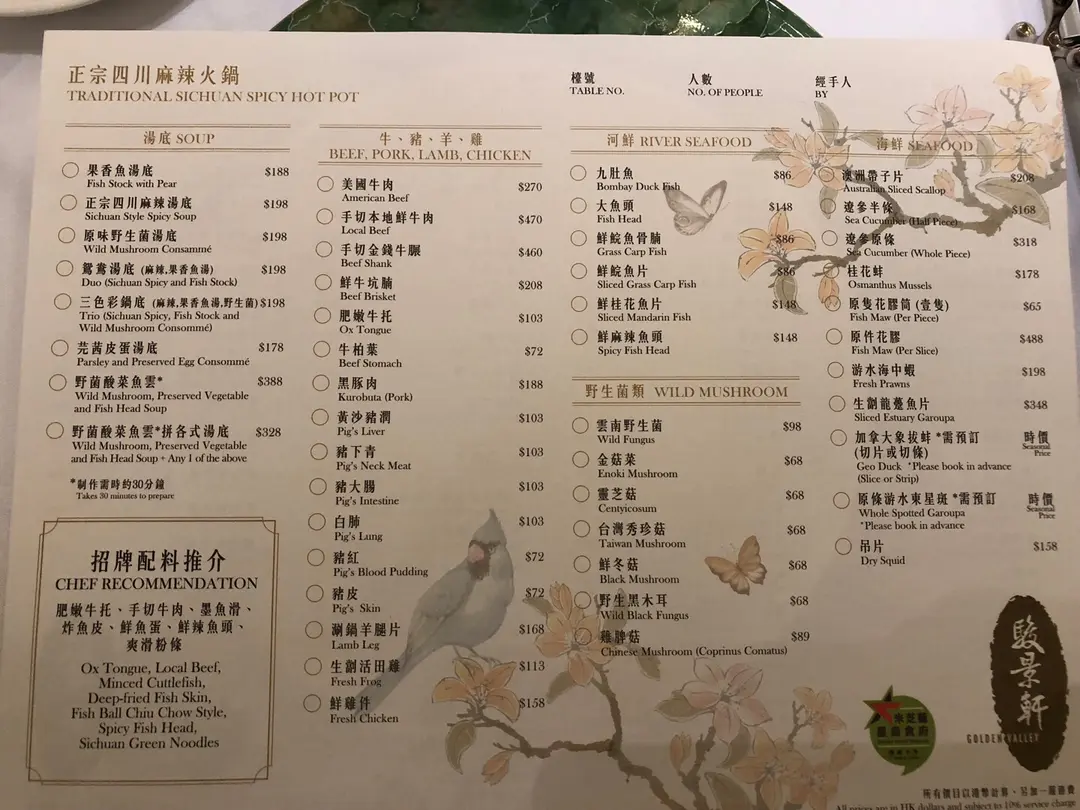 正宗四川麻辣火鍋
TRADITIONAL SICHUAN SPICY HOT POT
檯號
TABLE NO.
人數
NO. OF PEOPLE
經手人
BY
湯底 SOUP
果香魚湯底 $188
Fish Stock with Pear
正宗四川麻辣湯底 $198
Sichuan Style Spicy Soup
原味野生菌湯底 $198
Wild Mushroom Consammé
鴛鴦湯底 (麻辣,果香魚湯) $198
Duo (Sichuan Spicy and Fish Stock)
三色彩鍋底 (麻辣,果香魚湯,野生菌) $198
Trio (Sichuan Spicy, Fish Stock and
Wild Mushroom Consommé)
芫茜皮蛋湯底 $178
Parsley and Preserved Egg Consommé
野菌酸菜魚雲* $388
Wild Mushroom, Preserved Vegetable
and Fish Head Soup
野菌酸菜魚雲*拼各式湯底 $328
Wild Mushroom, Preserved Vegetable
and Fish Head Soup + Any 1 of the above
*制作需時約30分鐘
Takes 30 minutes to prepare
招牌配料推介
CHEF RECOMMENDATION
肥嫩牛托、手切牛肉、墨魚滑、
炸魚皮、鮮魚蛋、鮮辣魚頭、
爽滑粉條
Ox Tongue, Local Beef,
Minced Cuttlefish,
Deep-fried Fish Skin,
Fish Ball Chiu Chow Style,
Spicy Fish Head,
Sichuan Green Noodles
牛、豬、羊、雞
BEEF, PORK, LAMB, CHICKEN
美國牛肉 $270
American Beef
手切本地鮮牛肉 $470
Local Beef
手切金錢牛𦟌 $460
Beef Shank
鮮牛坑腩 $208
Beef Brisket
肥嫩牛托 $103
Ox Tongue
牛柏葉 $72
Beef Stomach
黑豚肉 $188
Kurobuta (Pork)
黃沙豬潤 $103
Pig's Liver
豬下青 $103
Pig's Neck Meat
豬大腸 $103
Pig's Intestine
白肺 $103
Pig's Lung
豬紅 $72
Pig's Blood Pudding
豬皮 $72
Pig's Skin
涮鍋羊腿片 $168
Lamb Leg
生劏活田雞 $113
Fresh Frog
鮮雞件 $158
Fresh Chicken
河鮮 RIVER SEAFOOD
九肚魚 $86
Bombay Duck Fish
大魚頭 $148
Fish Head
鮮鯇魚骨腩 $86
Grass Carp Fish
鮮鯇魚片 $86
Sliced Grass Carp Fish
鮮桂花魚片 $148
Sliced Mandarin Fish
鮮麻辣魚頭 $148
Spicy Fish Head
野生菌類 WILD MUSHROOM
雲南野生菌 $98
Wild Fungus
金菇菜 $68
Enoki Mushroom
靈芝菇 $68
Centyicosum
台灣秀珍菇 $68
Taiwan Mushroom
鮮冬菇 $68
Black Mushroom
野生黑木耳 $68
Wild Black Fungus
雞髀菇 $89
Chinese Mushroom (Coprinus Comatus)
海鮮 SEAFOOD
澳洲帶子片 $208
Australian Sliced Scallop
遼參半條 $168
Sea Cucumber (Half Piece)
遼參原條 $318
Sea Cucumber (Whole Piece)
桂花蚌 $178
Osmanthus Mussels
原隻花膠筒 (壹隻) $65
Fish Maw (Per Piece)
原件花膠 $488
Fish Maw (Per Slice)
游水海中蝦 $198
Fresh Prawns
生劏龍躉魚片 $348
Sliced Estuary Garoupa
加拿大象拔蚌 *需預訂 時價
(切片或切條) Seasonal Price
Geo Duck *Please book in advance
(Slice or Strip)
原條游水東星斑 *需預訂 時價
Whole Spotted Garoupa Seasonal Price
*Please book in advance
吊片 $158
Dry Squid
駿景軒
GOLDEN VALLEY
米芝蓮
星廚食府
所有價目以港幣計算、另加一服務費
All prices are in HK dollars and subject to 10% service charge